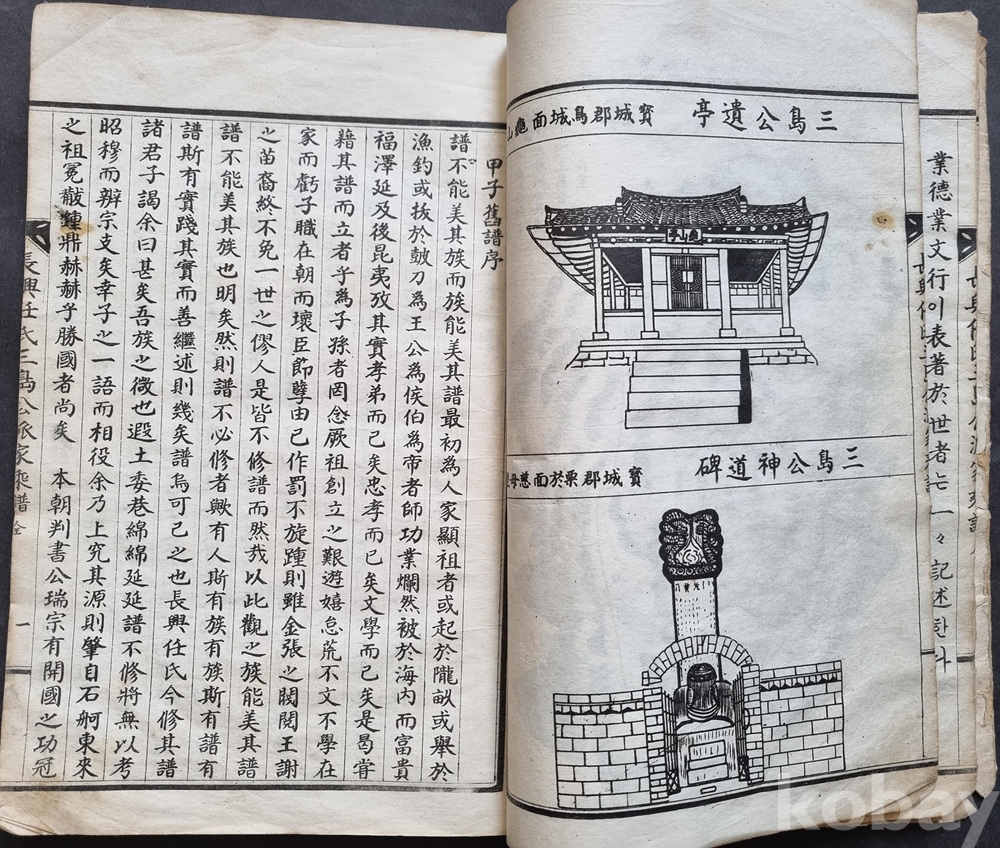 業德業文行이表著於世者
一々記述한
三島公遺亭 寳城郡鳥城面龜山
龜山亭
三島公神道碑 寳城郡栗於面慈母
甲子舊譜序
譜不能美其族而族能美其譜最初為人家顯祖者或起於隴畝或舉於
漁釣或拔於皷刀為王公為侯伯為帝者師功業爛然被於海內而富貴
福澤延及後昆夷攷其實孝弟而已矣忠孝而已矣文學而已矣是曷甞
藉其譜而立者乎為子孫者罔念厥祖創立之艱遊嬉怠荒不文不學在
家而虧子職在朝而壞臣節孽由己作罰不旋踵則雖金張之閥閱王謝
之苗裔終不免一世之僇人是皆不修譜而然哉以此觀之族能美其譜
譜不能美其族也明矣然則譜不必修者歟有人斯有族有族斯有譜有
譜斯有實踐其實而善繼述則幾矣譜烏可已之也長興任氏今修其譜
諸君子謁余曰甚矣吾族之微也遐土委巷綿綿延延譜不修將無以考
昭穆而辨宗支矣幸子之一語而相役余乃上究其源則肇自石舸東來
之祖冕黻鍾鼎赫赫乎勝國者尚矣 本朝判書公瑞宗有開國之功冠
長興任氏三島公派家乘譜 全 一
kobay